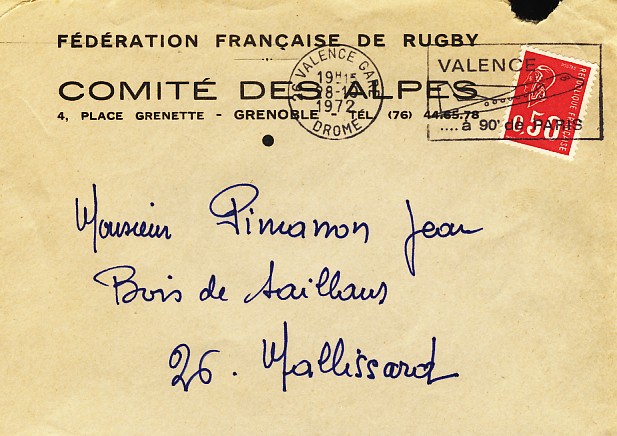 FÉDÉRATION FRANÇAISE DE RUGBY
COMITÉ DES ALPES
4, PLACE GRENETTE - GRENOBLE - TÉL (76) 44.65.78
26 VALENCE GARE
19H15
28-10
1972
DROME
VALENCE
.... à 90' de PARIS
REPUBLIQUE FRANÇAISE
0,50
Monsieur Pimanon Jean
Bois de Saillans
26. Mallissard